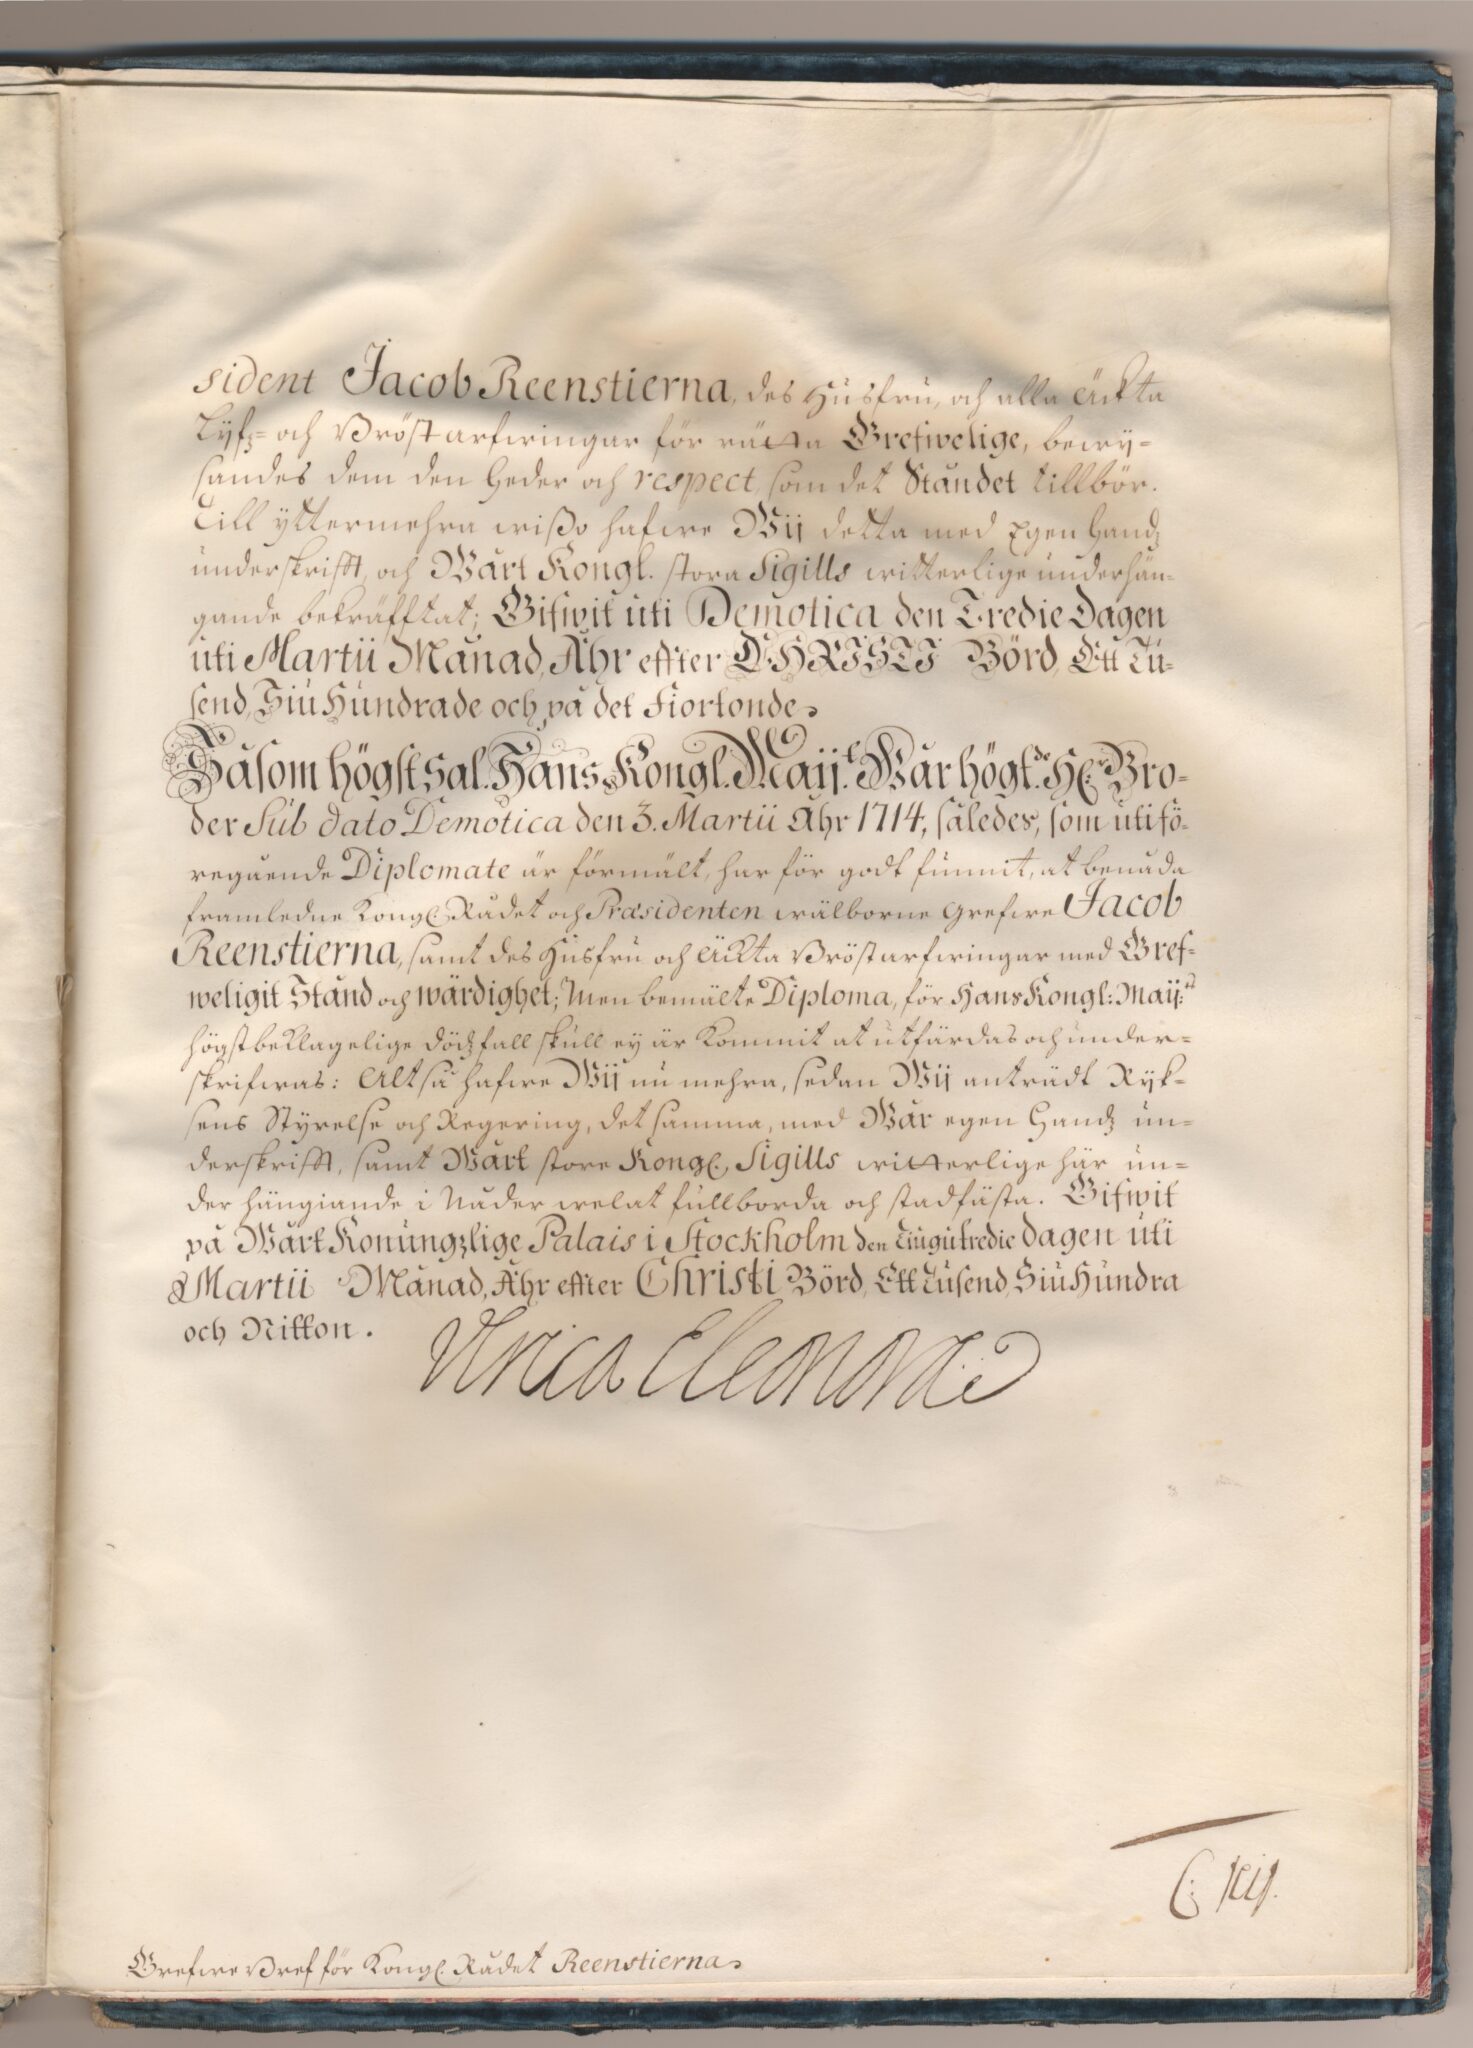 sident Jacob Reenstierna, des Husfru, och alla Äckta
Lyfz- och Bröstarfwingar för rätta Grefwelige, bewy-
sandes dem den Heder och respect, som det Ståndet tillbör.
Till yttermehra wißo hafwe Wij detta med Egen Handz
underskrifft, och Wårt Kongl. stora Sigills witterlige underhän-
gande bekräfftat; Gifwit uti Demotica den Tredie Dagen
uti Martii Månad, Åhr effter CHRISTI Börd, Ett Tu-
send, Siu Hundrade och på det Fiortonde.
Såsom högst Sal. Hans Kongl. Maij:tt Wår högt.de H:r Bro-
der Sub dato Demotica den 3. Martii Åhr 1714, således, som uti fö-
regående Diplomate är förmält, har för godt funnit, at benåda
framledne Kongl. Rådet och Præsidenten wälborne Grefwe Jacob
Reenstierna, samt des Husfru och Äckta Bröstarfwingar med Gref-
weligit Stånd och wärdighet; Men bemälte Diploma, för Hans Kongl: Maij:tz
högstbeklagelige dödzfall skull ey är Kommit at utfärdas och under-
skrifwas: Altså hafwe Wij nu mehra, sedan Wij anträdt Ryk-
sens Styrelse och Regering, det samma, med Wår egen Handz un-
derskrifft, samt Wårt store Kongl. Sigills witterlige här un-
der hängiande i Nåder welat fullborda och stadfästa. Gifwit
på Wårt Konungzlige Palais i Stockholm den Tiugutredie Dagen uti
Martii Månad, Åhr effter Christi Börd, Ett Tusend, Siu Hundra
och Nitton.
Ulrica Eleonora
Grefwe Bref för Kongl. Rådet Reenstierna.